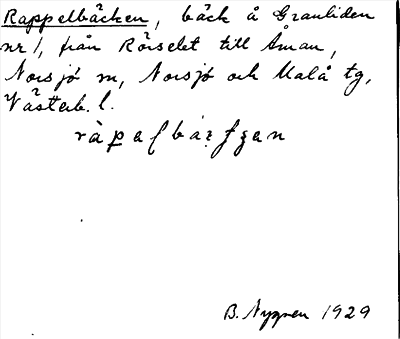 Rappelbäcken, bäck å Granliden
nr 1, från Rörselet till Åman,
Norsjö sn, Norsjö och Malå tg,
Västerb. l.
B. Nygren 1929